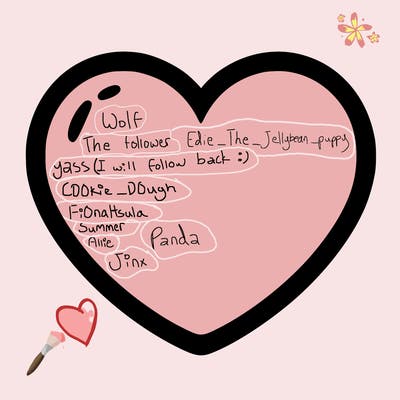 Wolf
The follower Edie_The_Jellybean_puppy
yass (I will follow back :)
COOkie_DOugh
FiOnaHsula
Summer
Allie
Panda
Jinx